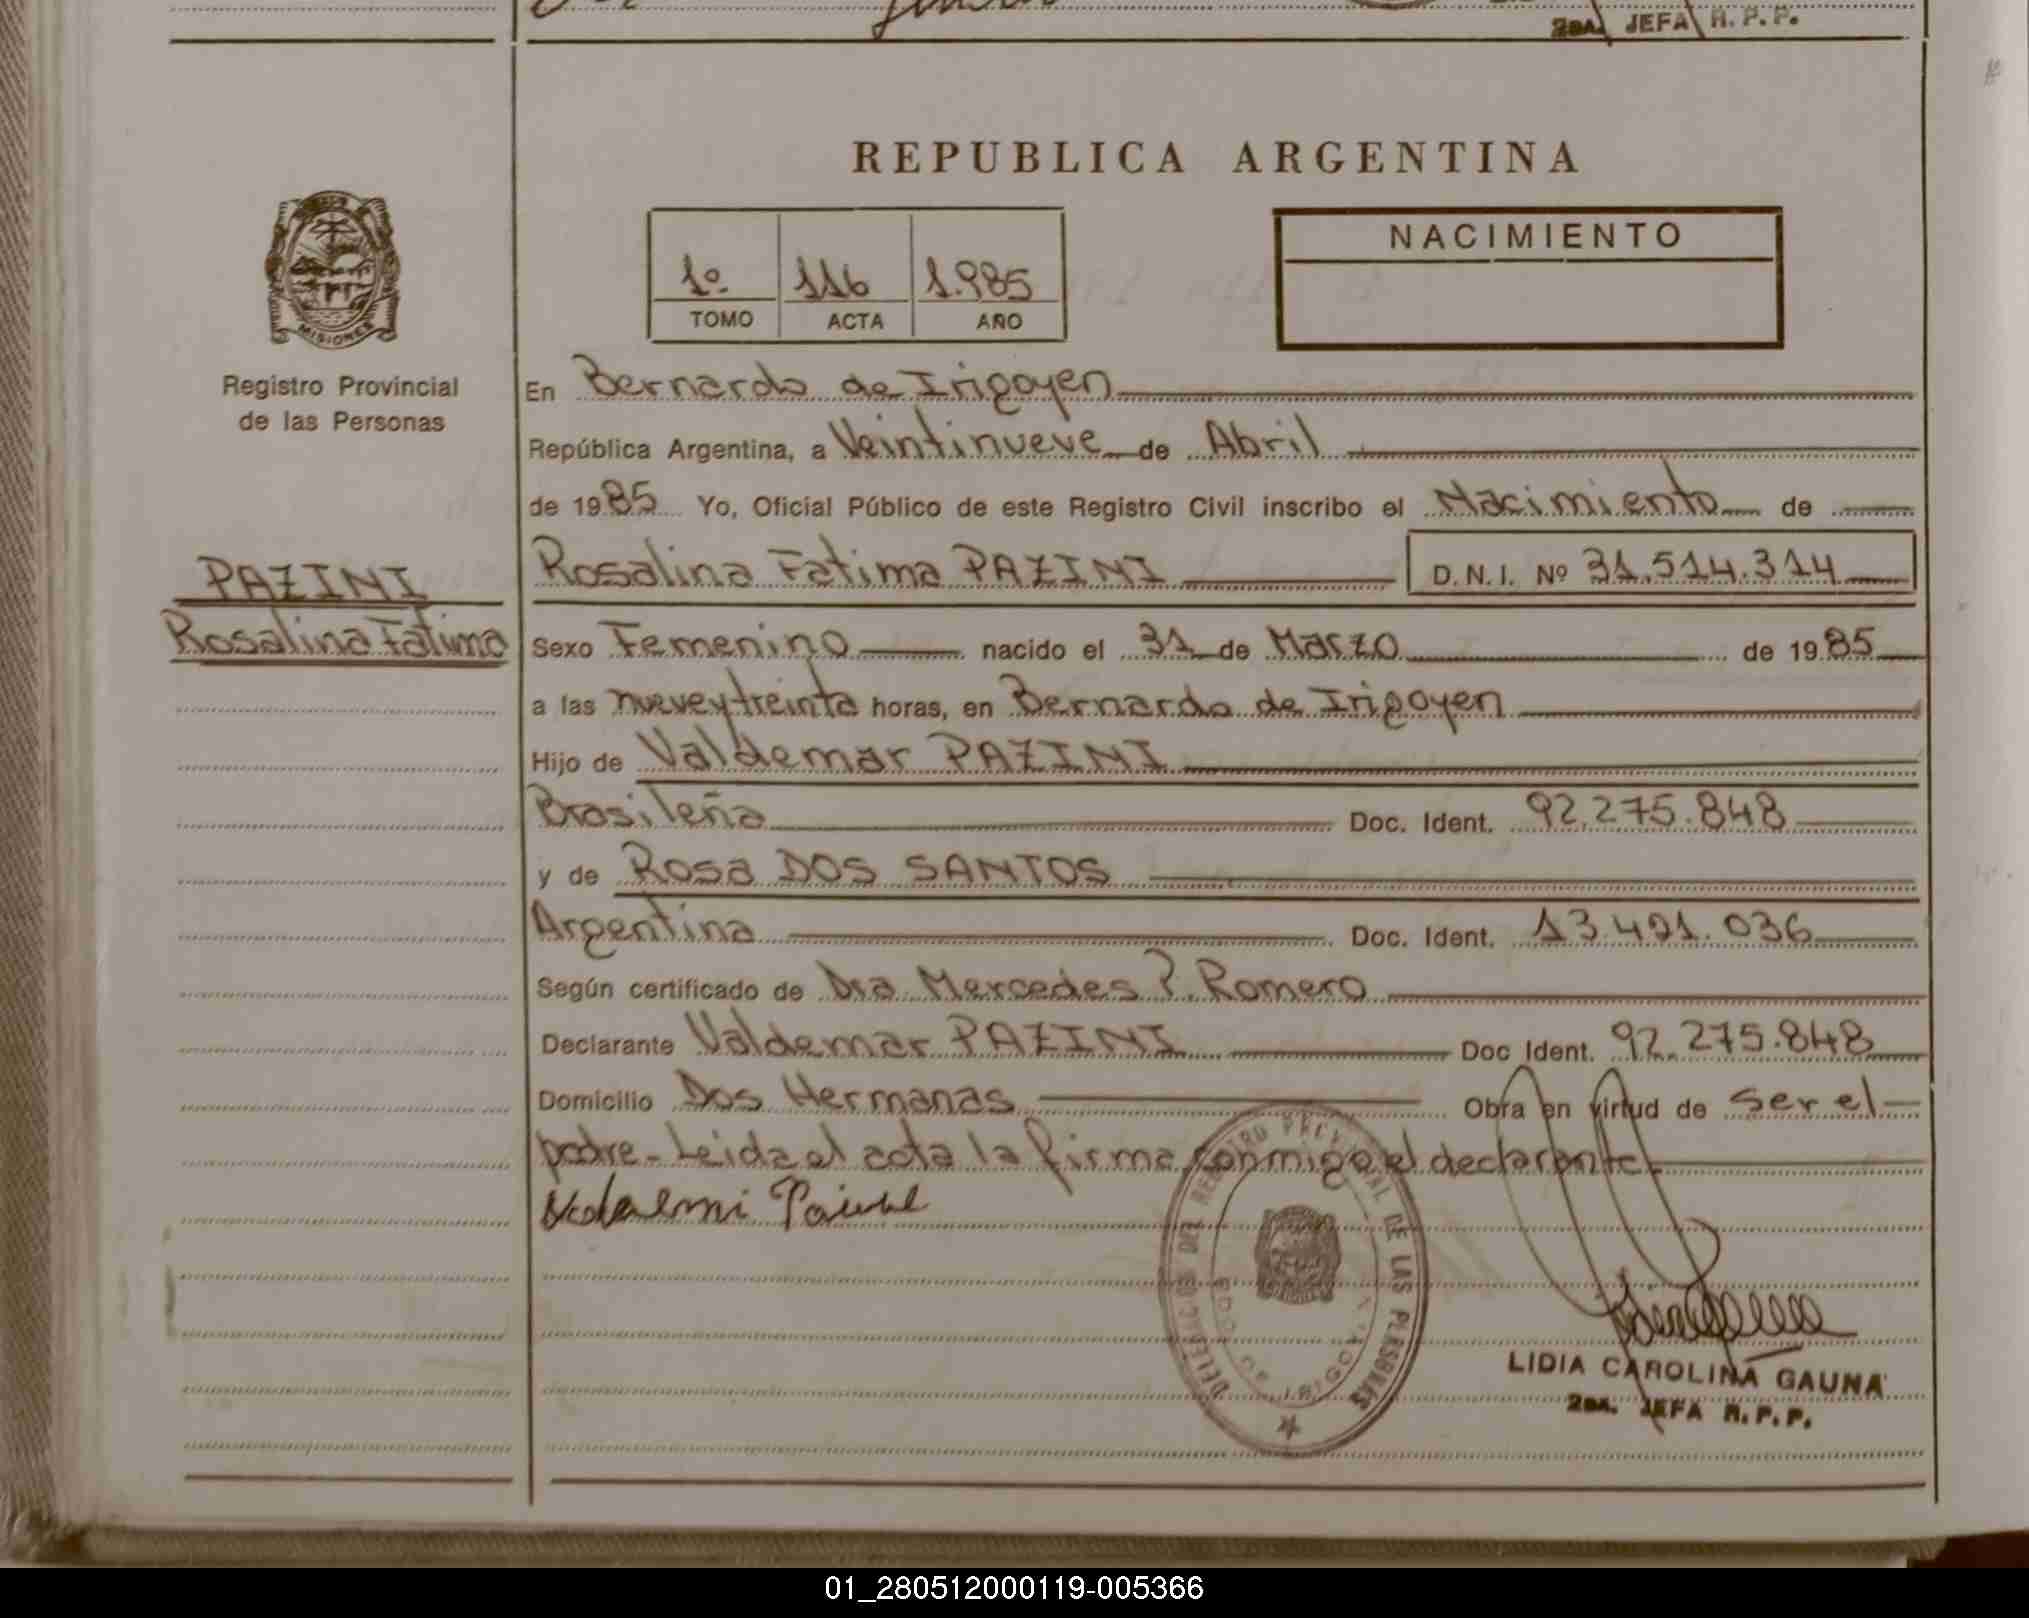 2DA. JEFA R. P. P.
REPUBLICA ARGENTINA
NACIMIENTO
1º 116 1.985
TOMO ACTA AÑO
MISIONES
Registro Provincial
de las Personas
En Bernardo de Irigoyen
República Argentina, a Veintinueve de Abril
de 1985 Yo, Oficial Público de este Registro Civil inscribo el Nacimiento de
PAZINI
Rosalina Fatima
Rosalina Fatima PAZINI D.N.I. Nº 31.514.314
Sexo Femenino nacido el 31 de Marzo de 1985
a las nueve y treinta horas, en Bernardo de Irigoyen
Hijo de Valdemar PAZINI
Brasileña Doc. Ident. 92.275.848
y de Rosa DOS SANTOS
Argentina Doc. Ident. 13.491.036
Según certificado de Dra Mercedes P. Romero
Declarante Valdemar PAZINI Doc Ident. 92.275.848
Domicilio Dos Hermanas Obra en virtud de ser el
padre - Leida el acta la firma conmigo el declarante
DELEGACION DEL REGISTRO PROVINCIAL DE LAS PERSONAS
DE IRIGOYEN
LIDIA CAROLINA GAUNA
2DA. JEFA R.P.P.
01_280512000119-005366